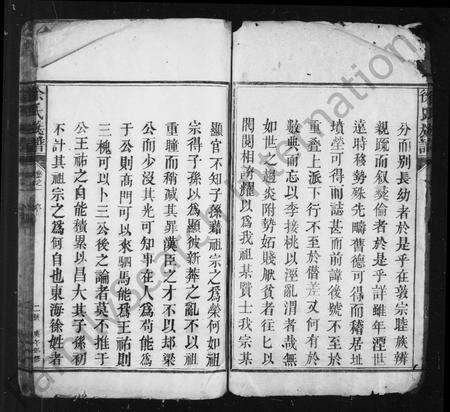 分而別長幼者於是乎在敦宗睦族辨
親疏而叙彛倫者於是乎詳雖年湮世
遠時移勢殊先疇舊德可得而稽居址
墳塋可得而誌甚而前諱後號不至於
重叠上派下行不至於僭差又何有於
數典而忘以李接桃以涇亂渭者哉無
如世之趨炎附勢妬賤厭貧者往匕以
閥閱相誇耀以爲我祖某賢士我宗某
顯官不知子孫藉祖宗之爲榮何如祖
宗得子孫以爲顯彼新莽之亂不以
重瞳而稍藏其罪漢臣之才不以邱梁
公而少沒其光可知事在人爲苟能爲
于公則高門可以來駟馬能爲王祐則
三槐可以卜三公後之論者莫不推于
公王祐之自能積累以昌大其子孫初
不計其祖宗之爲何自也東海徐姓者
徐氏族譜
徐氏族譜